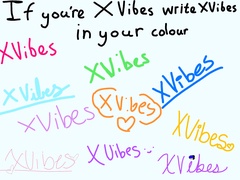 If you're X Vibes write XVibes
in your colour
XVibes
XVibes
XVibes
XVibes
XVibes
XVibes
XVibes
XVibes
XVibes
XVibes